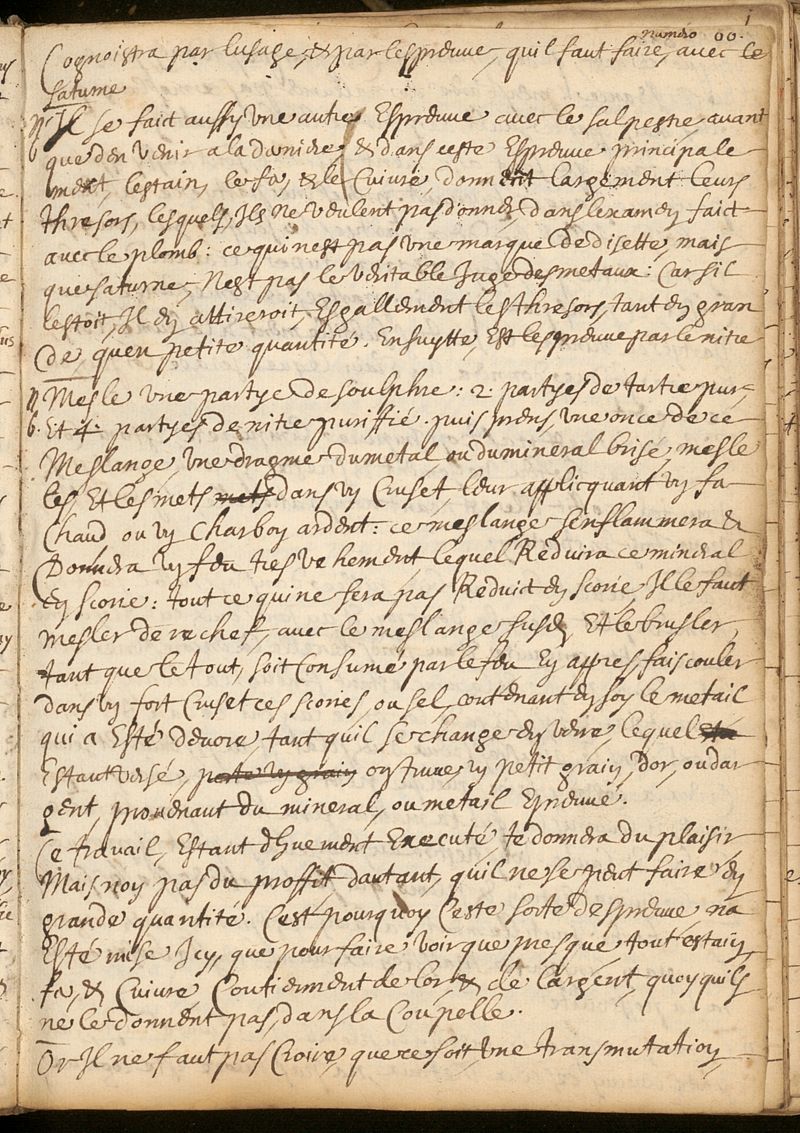 1
numéro 00.
Cognoistra par lusage, & par lespreuve, quil faut faire, avec le
saturne
Il se faict aussy une autre Espreuve avec le salpestre avant
que den venir a la derniere, & dans ceste Espreuve principale
ment, lestain, le fer, & le Cuivre, donnent largement leurs
thresors, lesquels, Ils ne veulent pas donner, dans lexamen faict
avec le plomb: ce qui nest pas une marque de disette, mais
que saturne, Nest pas le veritable Juge des metaux: Car sil
lestoit, Il en attireroit, Esgallement les thresors, tant en gran
de, quen petite quantité. Ensuytte, Est lespreuve par le nitre
Mesle une partye de soulphre: 2. partyes de tartre pur,
Et 4. partyes de nitre puriffié. puis prens, une once de ce
Meslange, une dragme du metal, ou du mineral brisé, mesle
les, Et les mets mets dans un Cruset, leur applicquant un fer
Chaud ou un Charbon ardent: ce meslange senflammera &
Donnera un feu tres vehement lequel Reduira ce mineral
en scorie: tout ce qui ne sera pas Reduict en scorie Il le faut
mesler derechef, avec le meslange susd, Et le brusler,
tant que le tout, soit Consumé par le feu En appres, fais couler
dans un fort Cruset ces scories, ou sel, contenant en soy le metail
qui a Esté devoré, tant quil se change en verre, lequel
Estant versé, porte un grain on trouve, un petit grain, dor, ou dar
gent, provenant du mineral, ou metail Epreuvé.
Ce travail, Estant dhuement Executé, te donnera du plaisir
Mais, non pas du proffit dautant, quil ne se peut faire en
grande quantité. C'est pourquoy Ceste sorte despreuve na
Esté mise Icy, que pour faire voir que presque tout estain,
fer, & Cuivre Contiennent de lor, & de largent, quoy quils
ne le donnent pas, dans la Coupelle.
Or Il ne faut pas Croire, que ce soit une transmutation